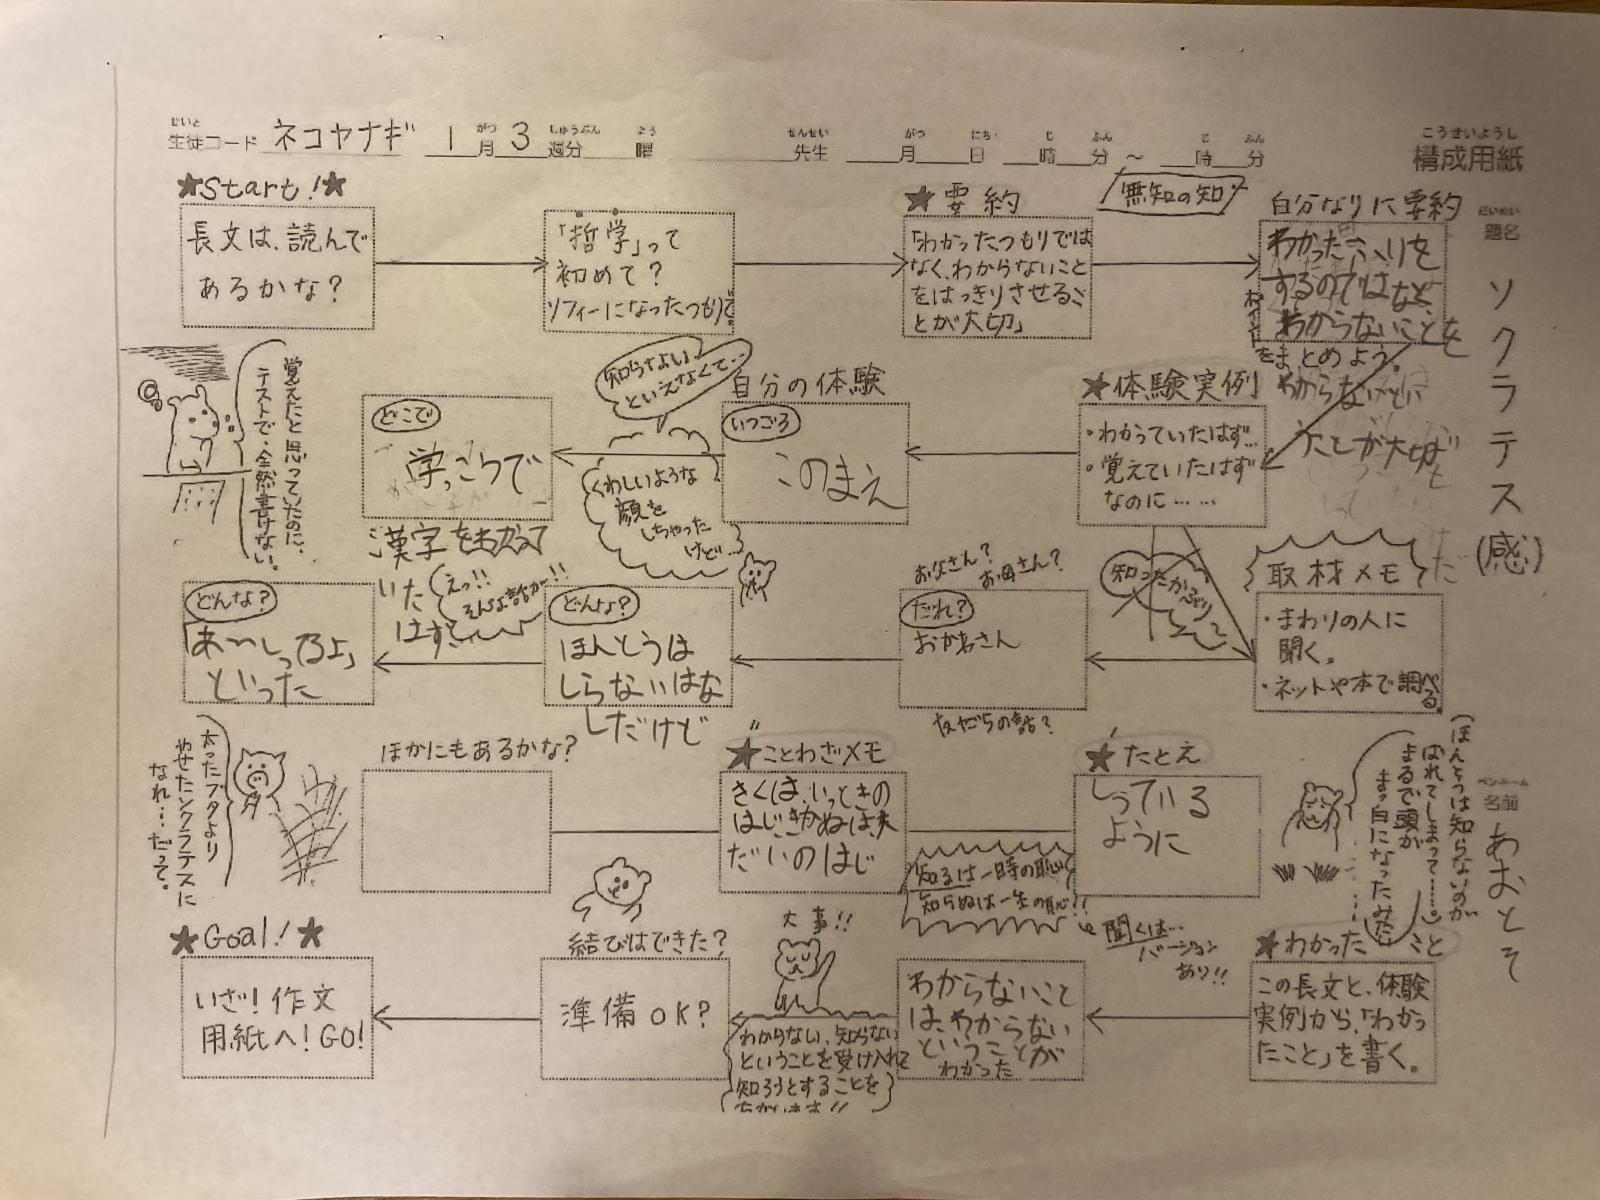 せいと
生徒コード ネコヤナギ 1月3週分 曜
がつ しゅうぶん よう
せんせい がつ にち じ ふん じ ふん
先生 月 日 時 分 ~ 時 分
こうせいようし
構成用紙
だいめい
題名
ソクラテス(感)
ペンネーム
名前
あおとそ
★Start!★
長文は、読んで
あるかな?
「哲学」って
初めて?
ソフィーになったつもりで。
★要約
無知の知
「わかったつもりでは
なく、わからないこと
をはっきりさせるこ
とが大切」
自分なりに要約
わかったふりを
するのではなく
わからないことを
をまとめよう。
たことが大切だ
★体験実例
・わかっていたはず…
・覚えていたはず
なのに……
自分の体験
いつごろ
このまえ
知らないといえなくて…
くわしいような
顔を
しちゃった
けど…
どこで
学っこうで
漢字をわかって
いた
はず
覚えたと思っていたのに、
テストで、全然書けない。
取材メモ
・まわりの人に
聞く。
・ネットや本で調べる。
知ったかぶり
お父さん?
お母さん?
だれ?
おかあさん
友だちの話?
どんな?
ほんとうは
しらないはな
しだけど
えっ!!
そんな話が!!
どんな?
「あ～しってるよ」
といった
太ったブタより
やせたソクラテスに
なれ…だって。
ほかにもあるかな?
★ことわざメモ
きくは、いっときの
はじ、きかぬは、末
だいのはじ
知るは一時の恥
知らぬは一生の恥!!
聞くは…
バージョン
あり!!
★たとえ
しっている
ように
(ほんとうは知らないのが
ばれてしまって……。
まるで頭が
まっ白になったみたい
★わかったこと
この長文と、体験
実例から、「わかっ
たこと」を書く。
わからないこと
は、わからない
ということが
わかった
大事!!
わからない、知らない
ということを受け入れて
知ろうとすることを
結びはできた?
準備OK?
★Goal!★
いざ!作文
用紙へ!GO!